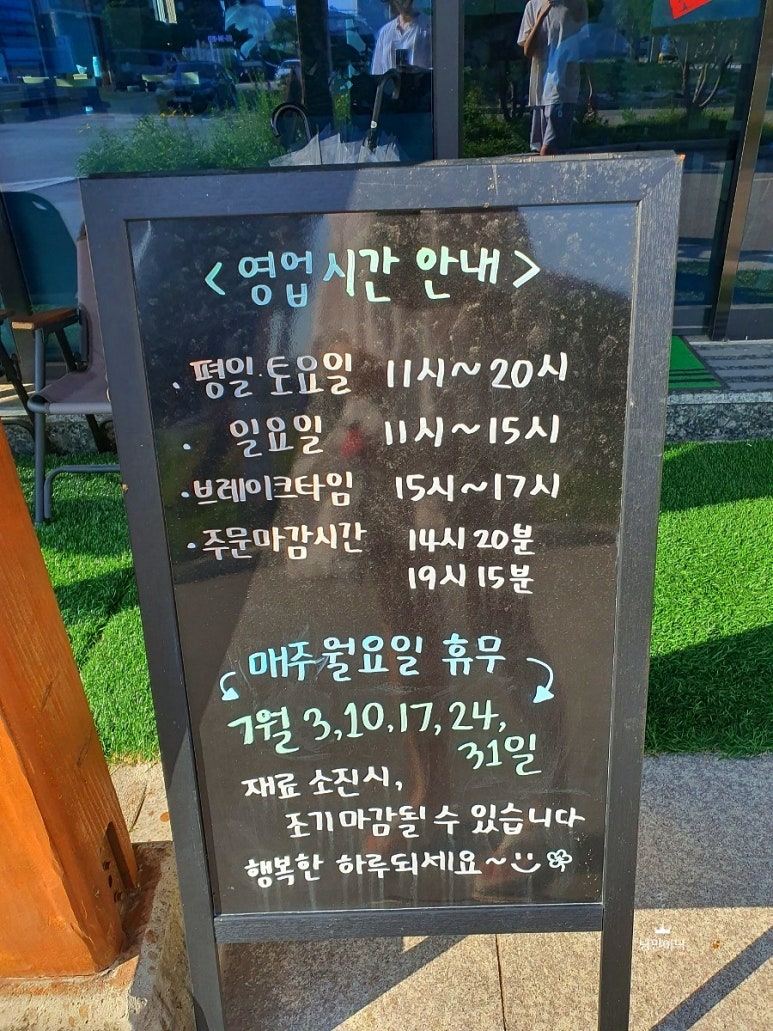 <영업시간 안내>
· 평일·토요일 11시~20시
· 일요일 11시~15시
·브레이크타임 15시~17시
·주문마감시간 14시 20분
19시 15분
매주월요일 휴무
7월 3,10,17,24,
31일
재료 소진시,
조기마감될 수 있습니다
행복한 하루되세요~